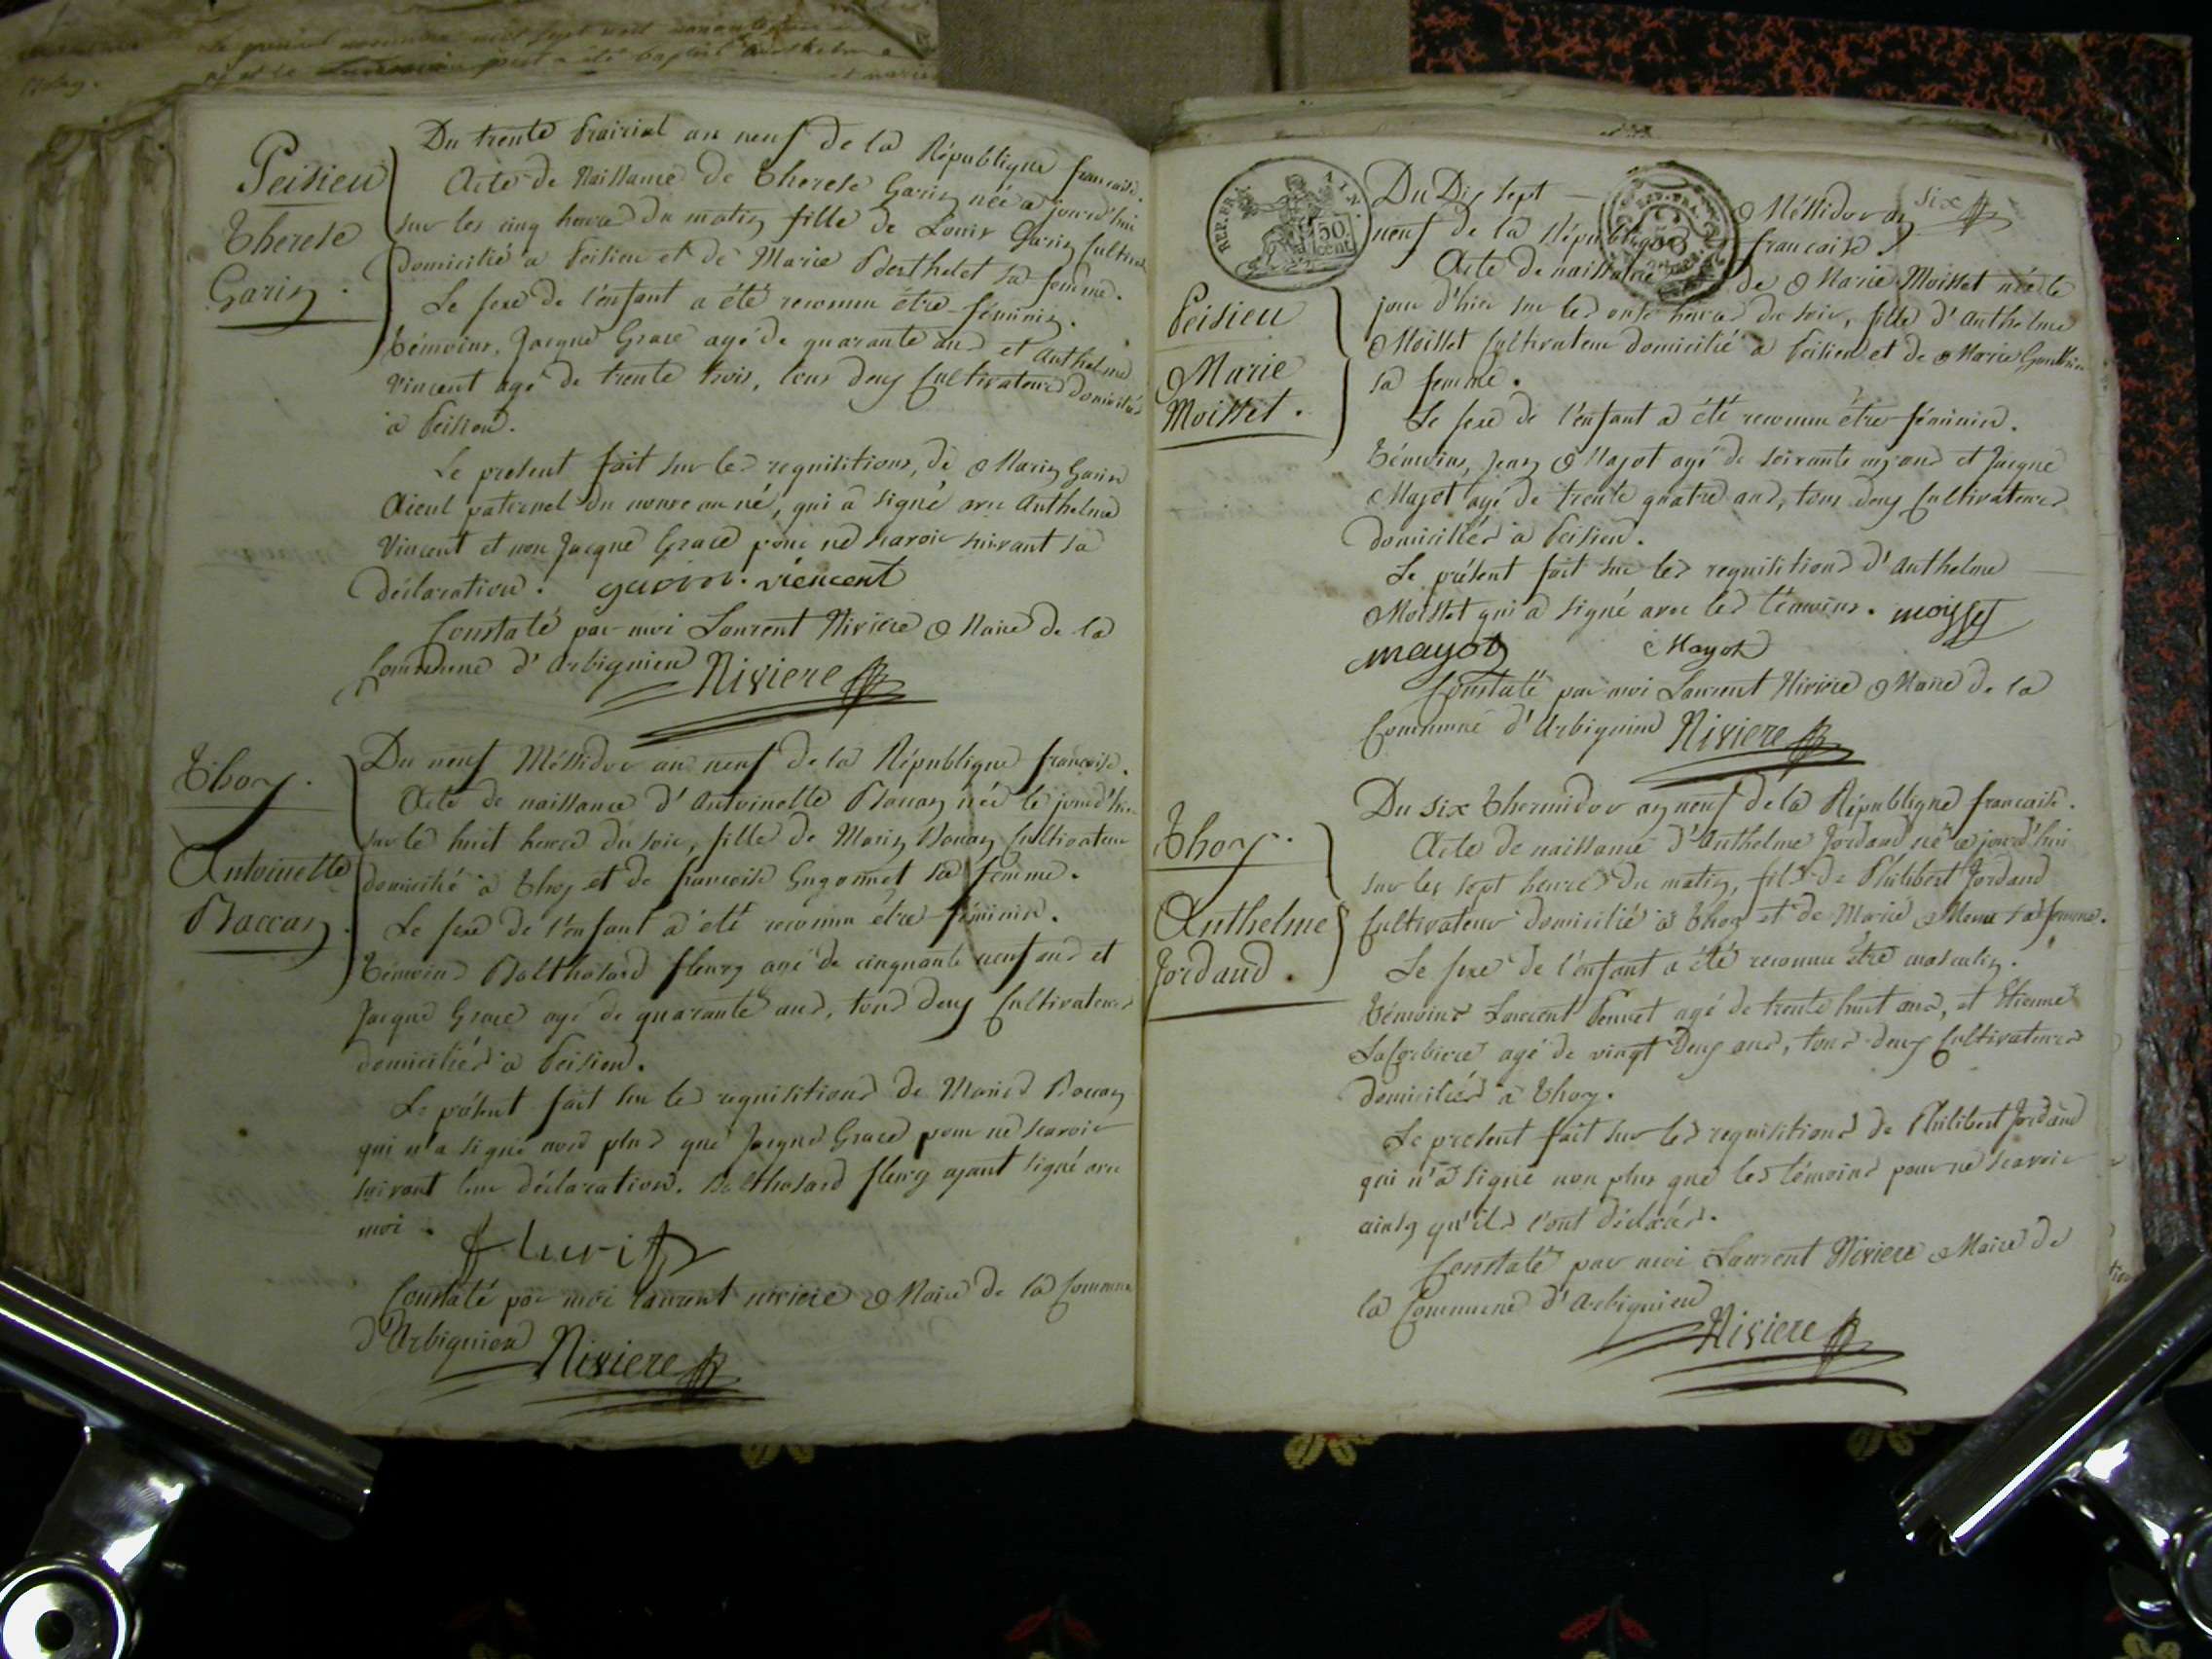 Peisieu
Therese
Garin.
Du trente Prairial an neuf de la République française.
Acte de Naissance de Therese Garin née a jourd'hui
sur les cinq heures du matin fille de Louis Garin Cultiva
domicilié a Peisieu et de Marie Berthelet sa femme.
Le sexe de l'enfant a été reconnu être féminin.
témoins, Jacque Grace agé de quarante ans et Anthelme
Vincent agé de trente trois, tous deux Cultivateurs domiciliés
à Peisieu.
Le present fait sur les requisitions, de Marin Garin
Aieul paternel du nouveau né, qui a signé avec Anthelme
Vincent et non Jacque Grace pour ne scavoir suivant sa
déclaration. garin. viencent
Constaté par moi Laurent Riviere Maire de la
Commune d'Arbignieu Riviere
Thoy.
Antoinette
Baccan.
Du neuf Messidor an neuf de la République française.
Acte de naissance d'Antoinette Baccan née le jour d'hier
sur le huit heures du soir, fille de Marin Baccan Cultivateur
domicilié à Thoy et de francoise Gugonnet sa femme.
Le sexe de l'enfant a été reconnu être féminin.
témoins Balthasard fleury agé de cinquante neuf ans et
Jacque Grace agé de quarante ans, tous deux Cultivateurs
domiciliés à Peisieu.
Le présent fait sur les requisitions de Marin Baccan
qui n'a signé non plus que Jacque Grace pour ne scavoir
suivant leur déclaration. Balthasard fleury ayant signé avec
moi. fleuri
Constaté par moi laurent riviere Maire de la Commune
d'Arbignieu Riviere
REP. FRA. AIN.
50 cent.
six
Du Dix sept Méssidor an
neuf de la République francaise
Peisieu
Marie
Moisset.
Acte de naissance de Marie Moisset née le
jour d'hier sur les onse heures du soir, fille d'Anthelme
Moisset Cultivateur domicilié à Peisieu et de Marie Gonthier
sa femme.
Le sexe de l'enfant a été reconnu être féminin.
témoins, Jean Majot agé de soixante ans et Jacque
Majot agé de trente quatre ans, tous deux Cultivateurs
domiciliés à Peisieu.
Le présent fait sur les requisitions d'Anthelme
Moisset qui a signé avec les témoins. moisset
mayot Mayot
Constaté par moi Laurent Riviere Maire de la
Commune d'Arbignieu Riviere
Thoy.
Anthelme
Jordand.
Du six Thermidor an neuf de la République francaise.
Acte de naissance d'Anthelme Jordand né ce jourd'hui
sur les sept heures du matin, fils de Philibert Jordand
Cultivateur domicilié à Thoy et de Marie sa femme.
Le sexe de l'enfant a été reconnu être masculin.
témoins Laurent agé de trente huit ans, et Etienne
Lacorbiere agé de vingt deux ans, tous deux Cultivateurs
domiciliés à Thoy.
Le present fait sur les requisitions de Philibert Jordand
qui n'a signé non plus que les témoins pour ne scavoir
ainsy qu'ils l'ont déclaré.
Constaté par moi Laurent Riviere Maire de
la Commune d'Arbignieu
Riviere